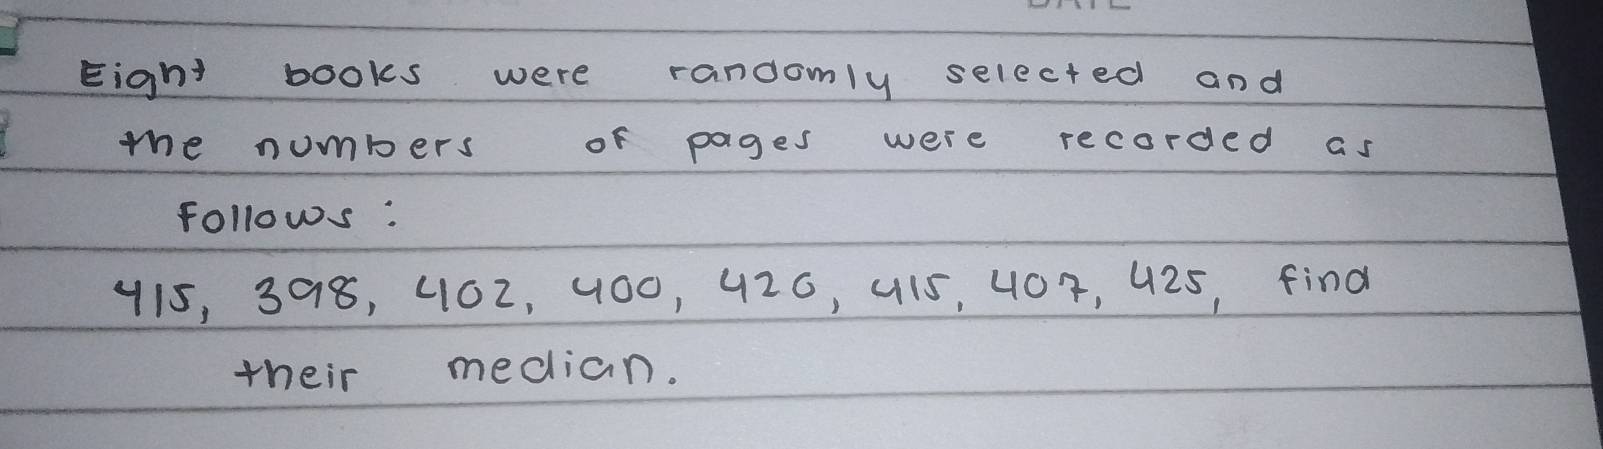 Eight books were randomly selected and
the numbers of pages were recorded as
follows :
415, 398, 402, 400, 420, 415, 407, 425, find
their median.